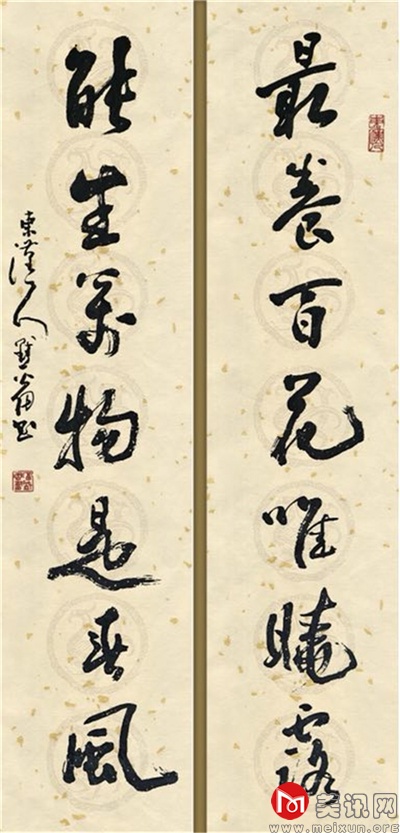 最養百花唯曉露
能生萬物是春風
東漢人
美讯网
www.meixun.org